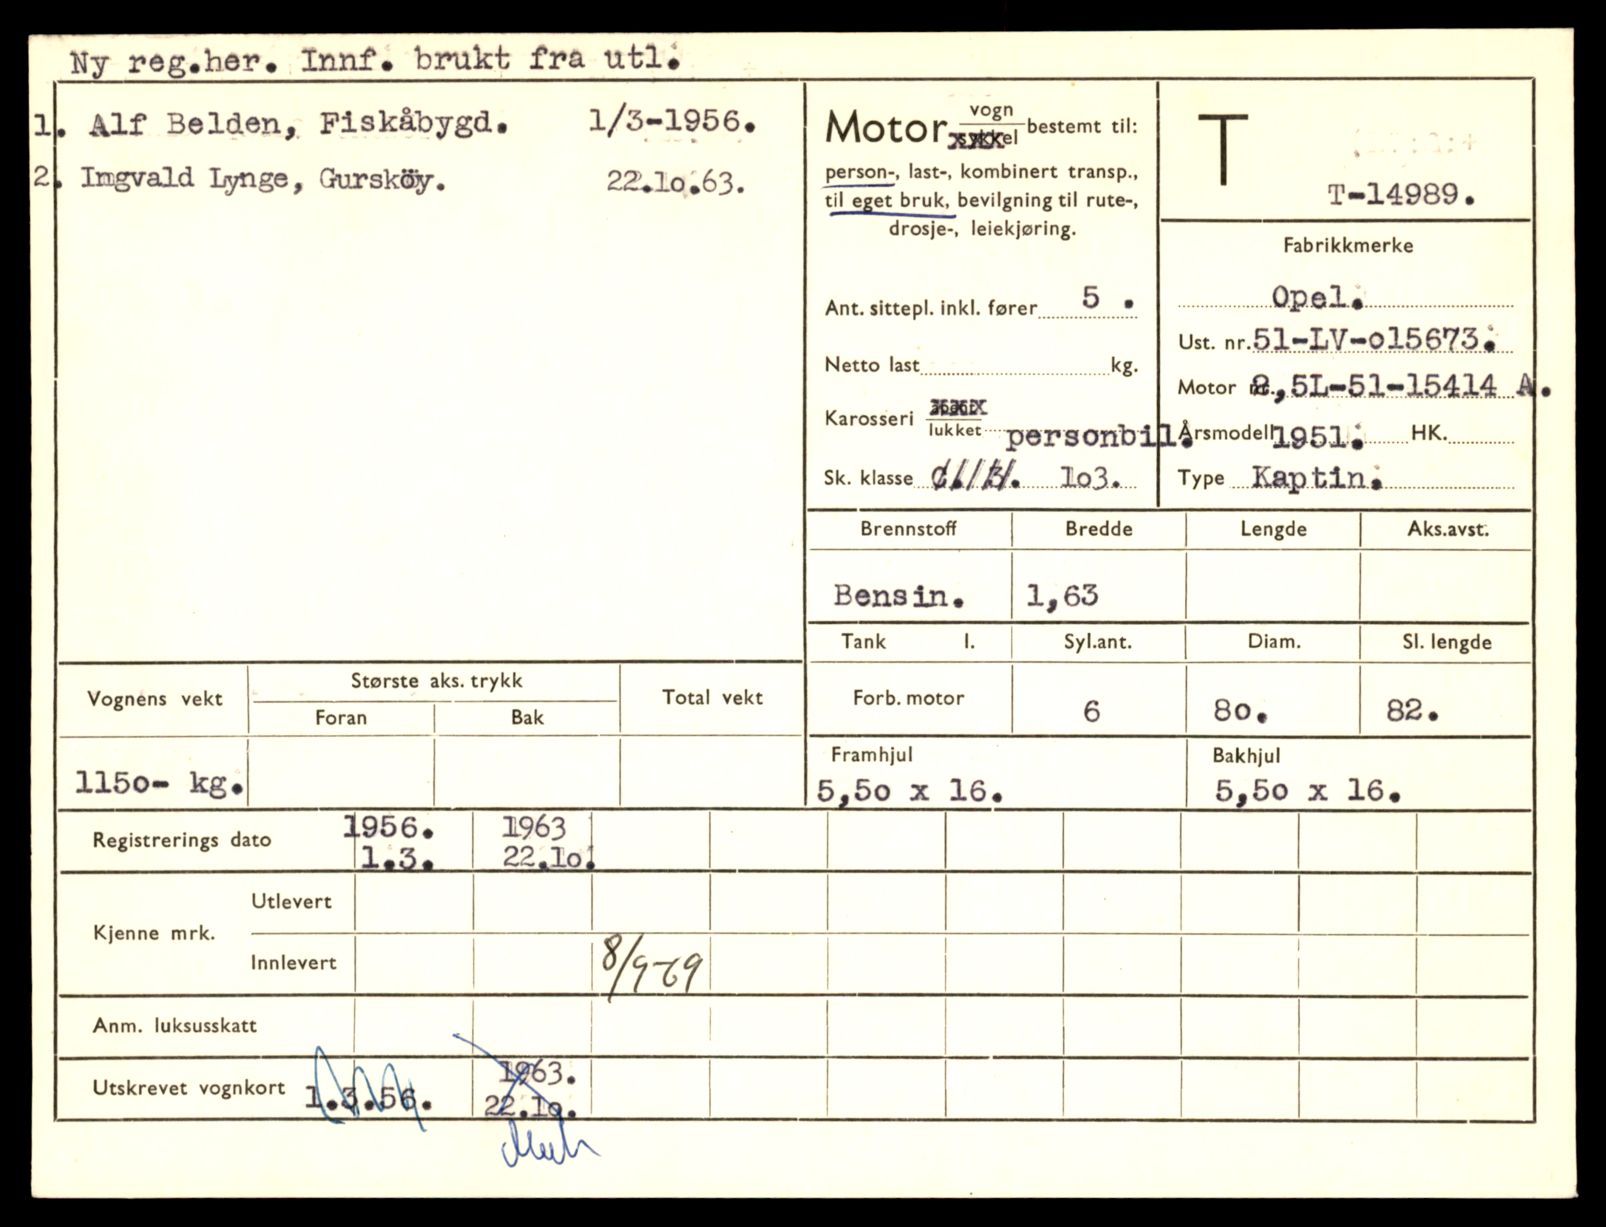 Ny reg.her. Innf. brukt fra utl.
1. Alf Belden, Fiskåbygd. 1/3-1956.
2. Ingvald Lynge, Gursköy. 22.1o.63.
Motor vogn bestemt til:
person-, last-, kombinert transp.,
til eget bruk, bevilgning til rute-,
drosje-, leiekjøring.
Ant. sittepl. inkl. fører 5 .
Netto last kg.
Karosseri åpent
lukket personbil.
Sk. klasse 1o3.
T
T-14989.
Fabrikkmerke
Opel.
Ust. nr. 51-LV-o15673.
Motor nr. 2,5L-51-15414 A.
Årsmodell 1951. HK.
Type Kaptin.
Brennstoff Bredde Lengde Aks.avst.
Bensin. 1,63
Tank l. Syl.ant. Diam. Sl. lengde
Forb. motor 6 8o. 82.
Framhjul Bakhjul
5,5o x 16. 5,5o x 16.
Vognens vekt Største aks. trykk Total vekt
Foran Bak
115o- kg.
Registrerings dato 1956. 1963
1.3. 22.1o.
Kjenne mrk. Utlevert
Innlevert 8/9-69
Anm. luksusskatt
Utskrevet vognkort 1.3.56. 1963.
22.1o.